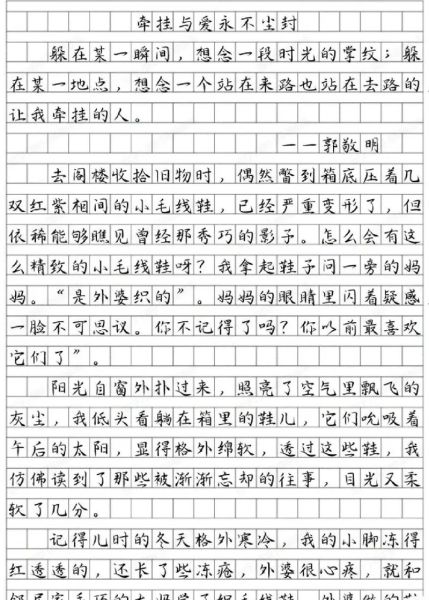 牵挂与爱永不尘封
躲在某一瞬间，想念一段时光的掌纹；躲
在某一地点，想念一个站在来路也站在去路的
让我牵挂的人。
——郭敬明
去阁楼收拾旧物时，偶然瞥到箱底压着几
双红紫相间的小毛线鞋，已经严重变形了，但
依稀能够瞧见曾经那秀巧的影子。怎么会有这
么精致的小毛线鞋呀？我拿起鞋子问一旁的妈
妈。“是外婆织的”。妈妈的眼睛里闪着疑惑
一脸不可思议。你不记得了吗？你以前最喜欢
它们了”。
阳光自窗外扑过来，照亮了空气里飘飞的
灰尘，我低头看躺在箱里的鞋儿，它们吮吸着
午后的太阳，显得格外绵软，透过这些鞋，我
仿佛读到了那些被渐渐忘却的往事，目光又柔
软了几分。
记得儿时的冬天格外寒冷，我的小脚冻得
红透透的，还长了些冻疮，外婆很心疼，就和
邻居家手巧的大妈学了织毛线鞋。外婆做的